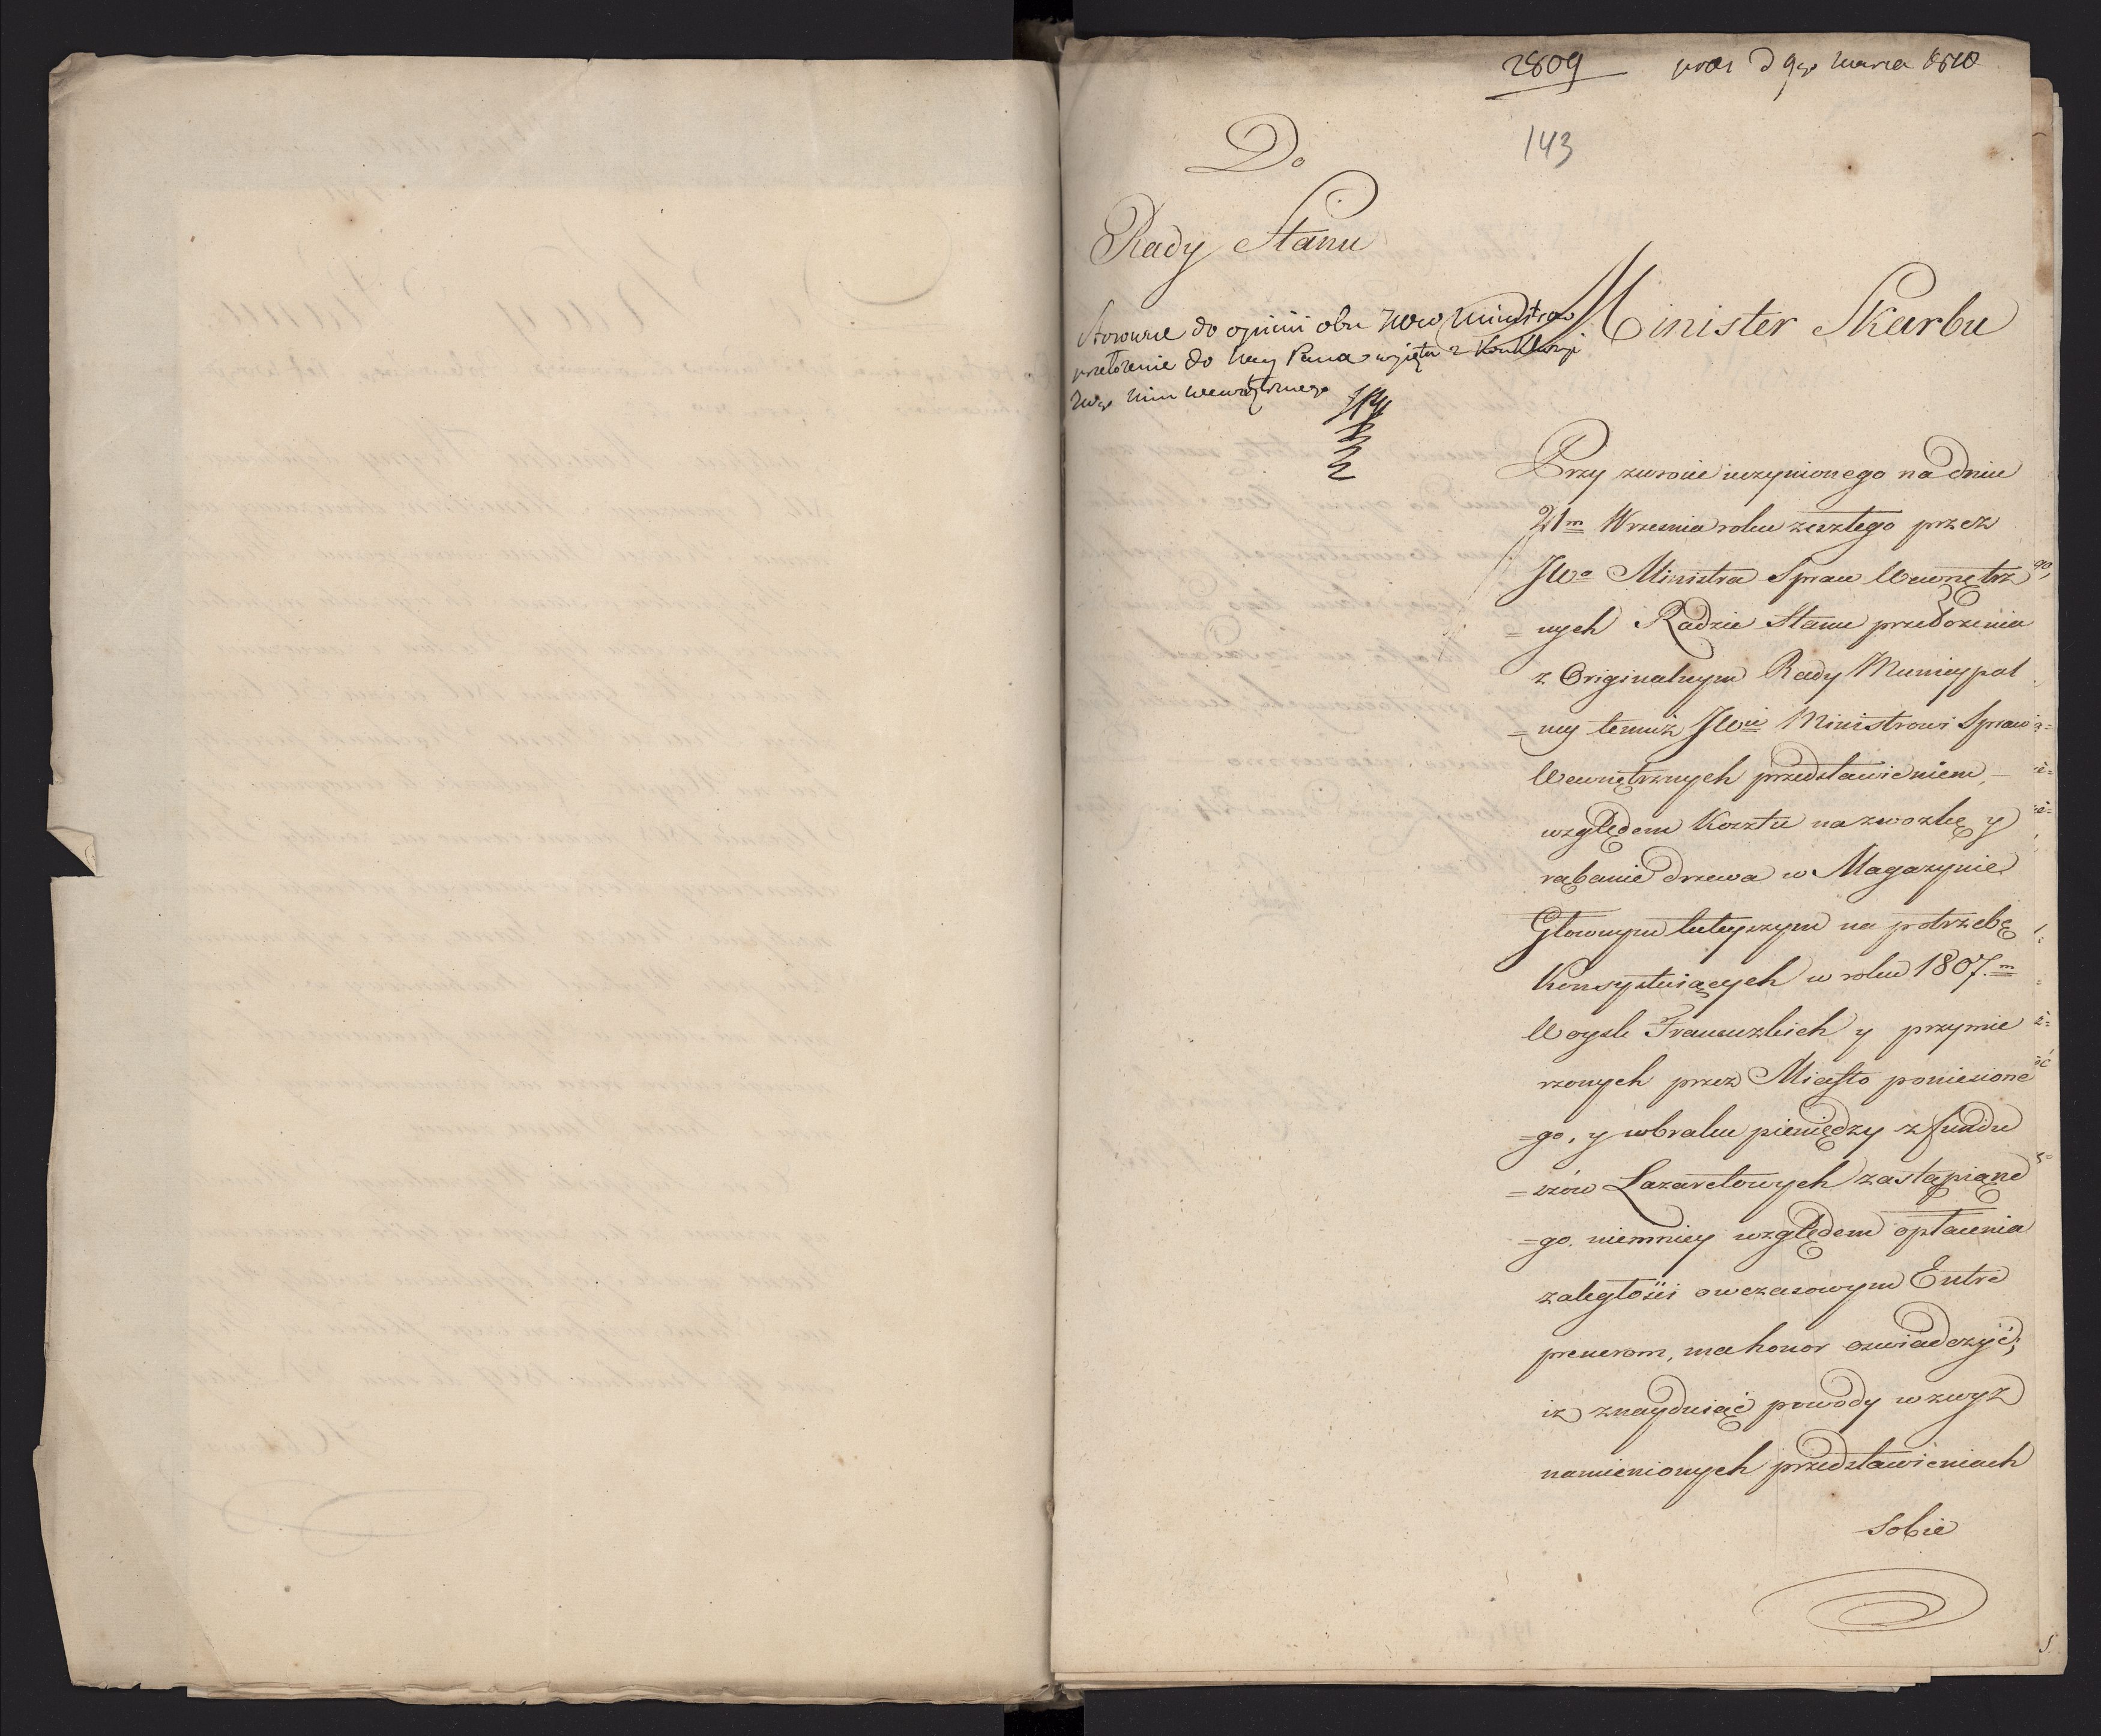 2809 d 9go marca 1810
143
Do
Rady Stanu
Stosownie do opinii obu JWW Ministrow
przełożenie do Nay Pana wyjęte z
JWgo Min Wewnętrznego
Minister Skarbu
Przy zwrocie uczynionego na dniu
21m Wrzesnia roku zeszłego przez
JWo Ministra Spraw Wewnętrz
=nych Radzie Stanu przełożenia
z Originalnym Rady Municypal
=ney temuż JWu Ministrowi Spraw
Wewnętrznych przedstawieniem, –
względem Kosztu na zwozkę y
rąbanie drzewa w Magazynie
Głownym tuteyszym na potrzebę
Konsystuiących w roku 1807.m
Woysk Francuzkich y przymie
rzonych przez Miasto poniesione
=go, y w braku pieniędzy z fundu
=szów Lazaretowych zastąpione
=go. niemniey względem opłacenia
zaległości owczasowym Entre
preuerom, ma honor oswiadczyć;
iż znayduiąc powody w zwyż
namienionych przedstawieniach
sobie